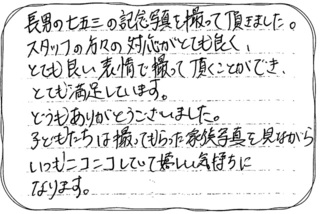 長男の七五三の記念写真を撮って頂きました。
スタッフの方々の対応がとても良く、
とても良い表情で撮って頂くことができ、
とても満足しています。
どうもありがとうございました。
子どもたちは撮ってもらった家族写真を見ながら
いつもニコニコしていて嬉しい気持ちに
なります。